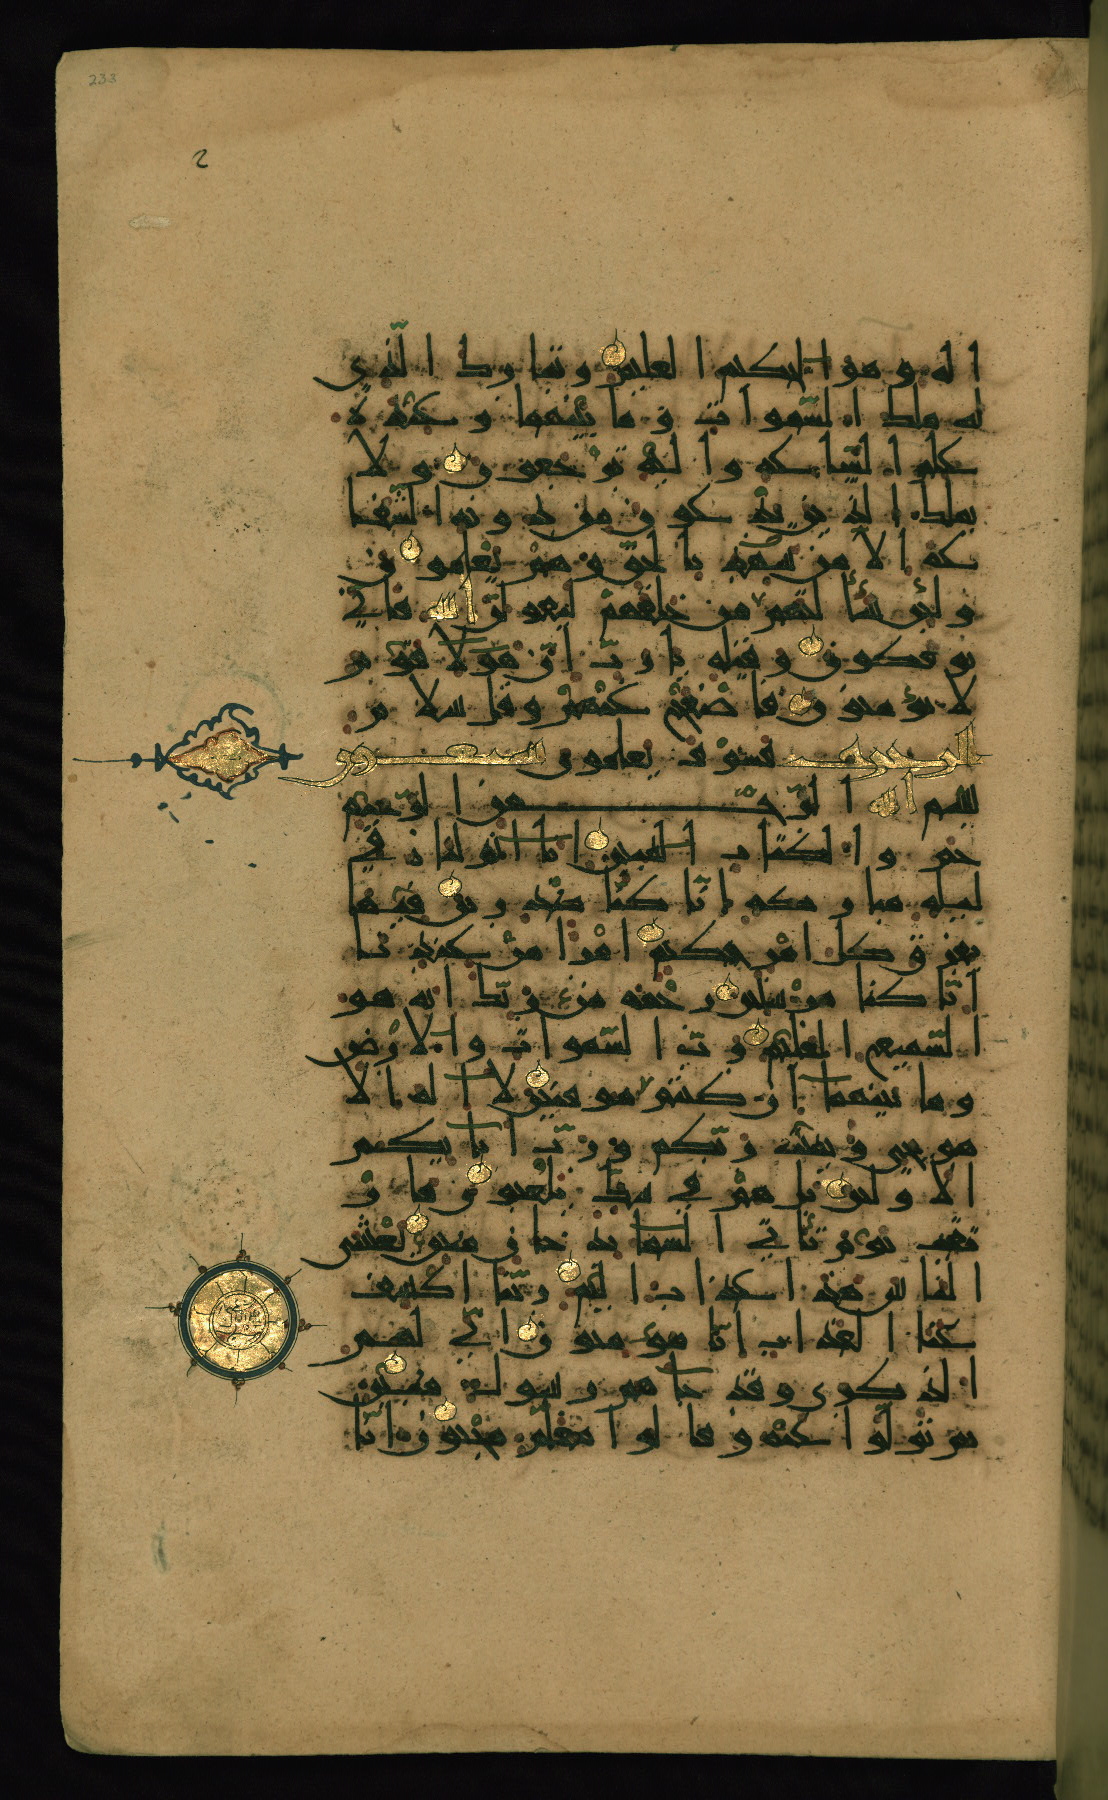 233
2
اله وهو الحكيم العليم وتبارك الذي
له ملك السموات و ما بينهما وعنده
علم الساعة واليه ترجعون ولا
يملك الذين يدعون من دونه الشفا
عة الا من شهد بالحق وهم يعلمون
ولئن سألتهم من خلقهم ليقولن الله فانى
يوفكون وقيله يا رب ان هولا قوم
لا يؤمنون فاصفح عنهم وقل سلام
فسوف يعلمون
بسم الله الرحمن الرحيم
حم والكتاب المبين انا انزلناه في
ليلة مباركة انا كنا منذرين فيها
يفرق كل امر حكيم امرا من عندنا
انا كنا مرسلين رحمة من ربك انه هو
السميع العليم رب السموات والارض
وما بينهما ان كنتم موقنين لا اله الا
هو يحيي ويميت ربكم ورب ابايكم
الاولين بل هم في شك يلعبون فار
تقب يوم تأتي السما بدخان مبين يغشى
الناس هذا عذاب اليم ربنا اكشف
عنا العذاب انا مؤمنون انى لهم
الذكرى وقد جاهم رسول مبين
ثم تولوا عنه وقالوا معلم مجنون انا